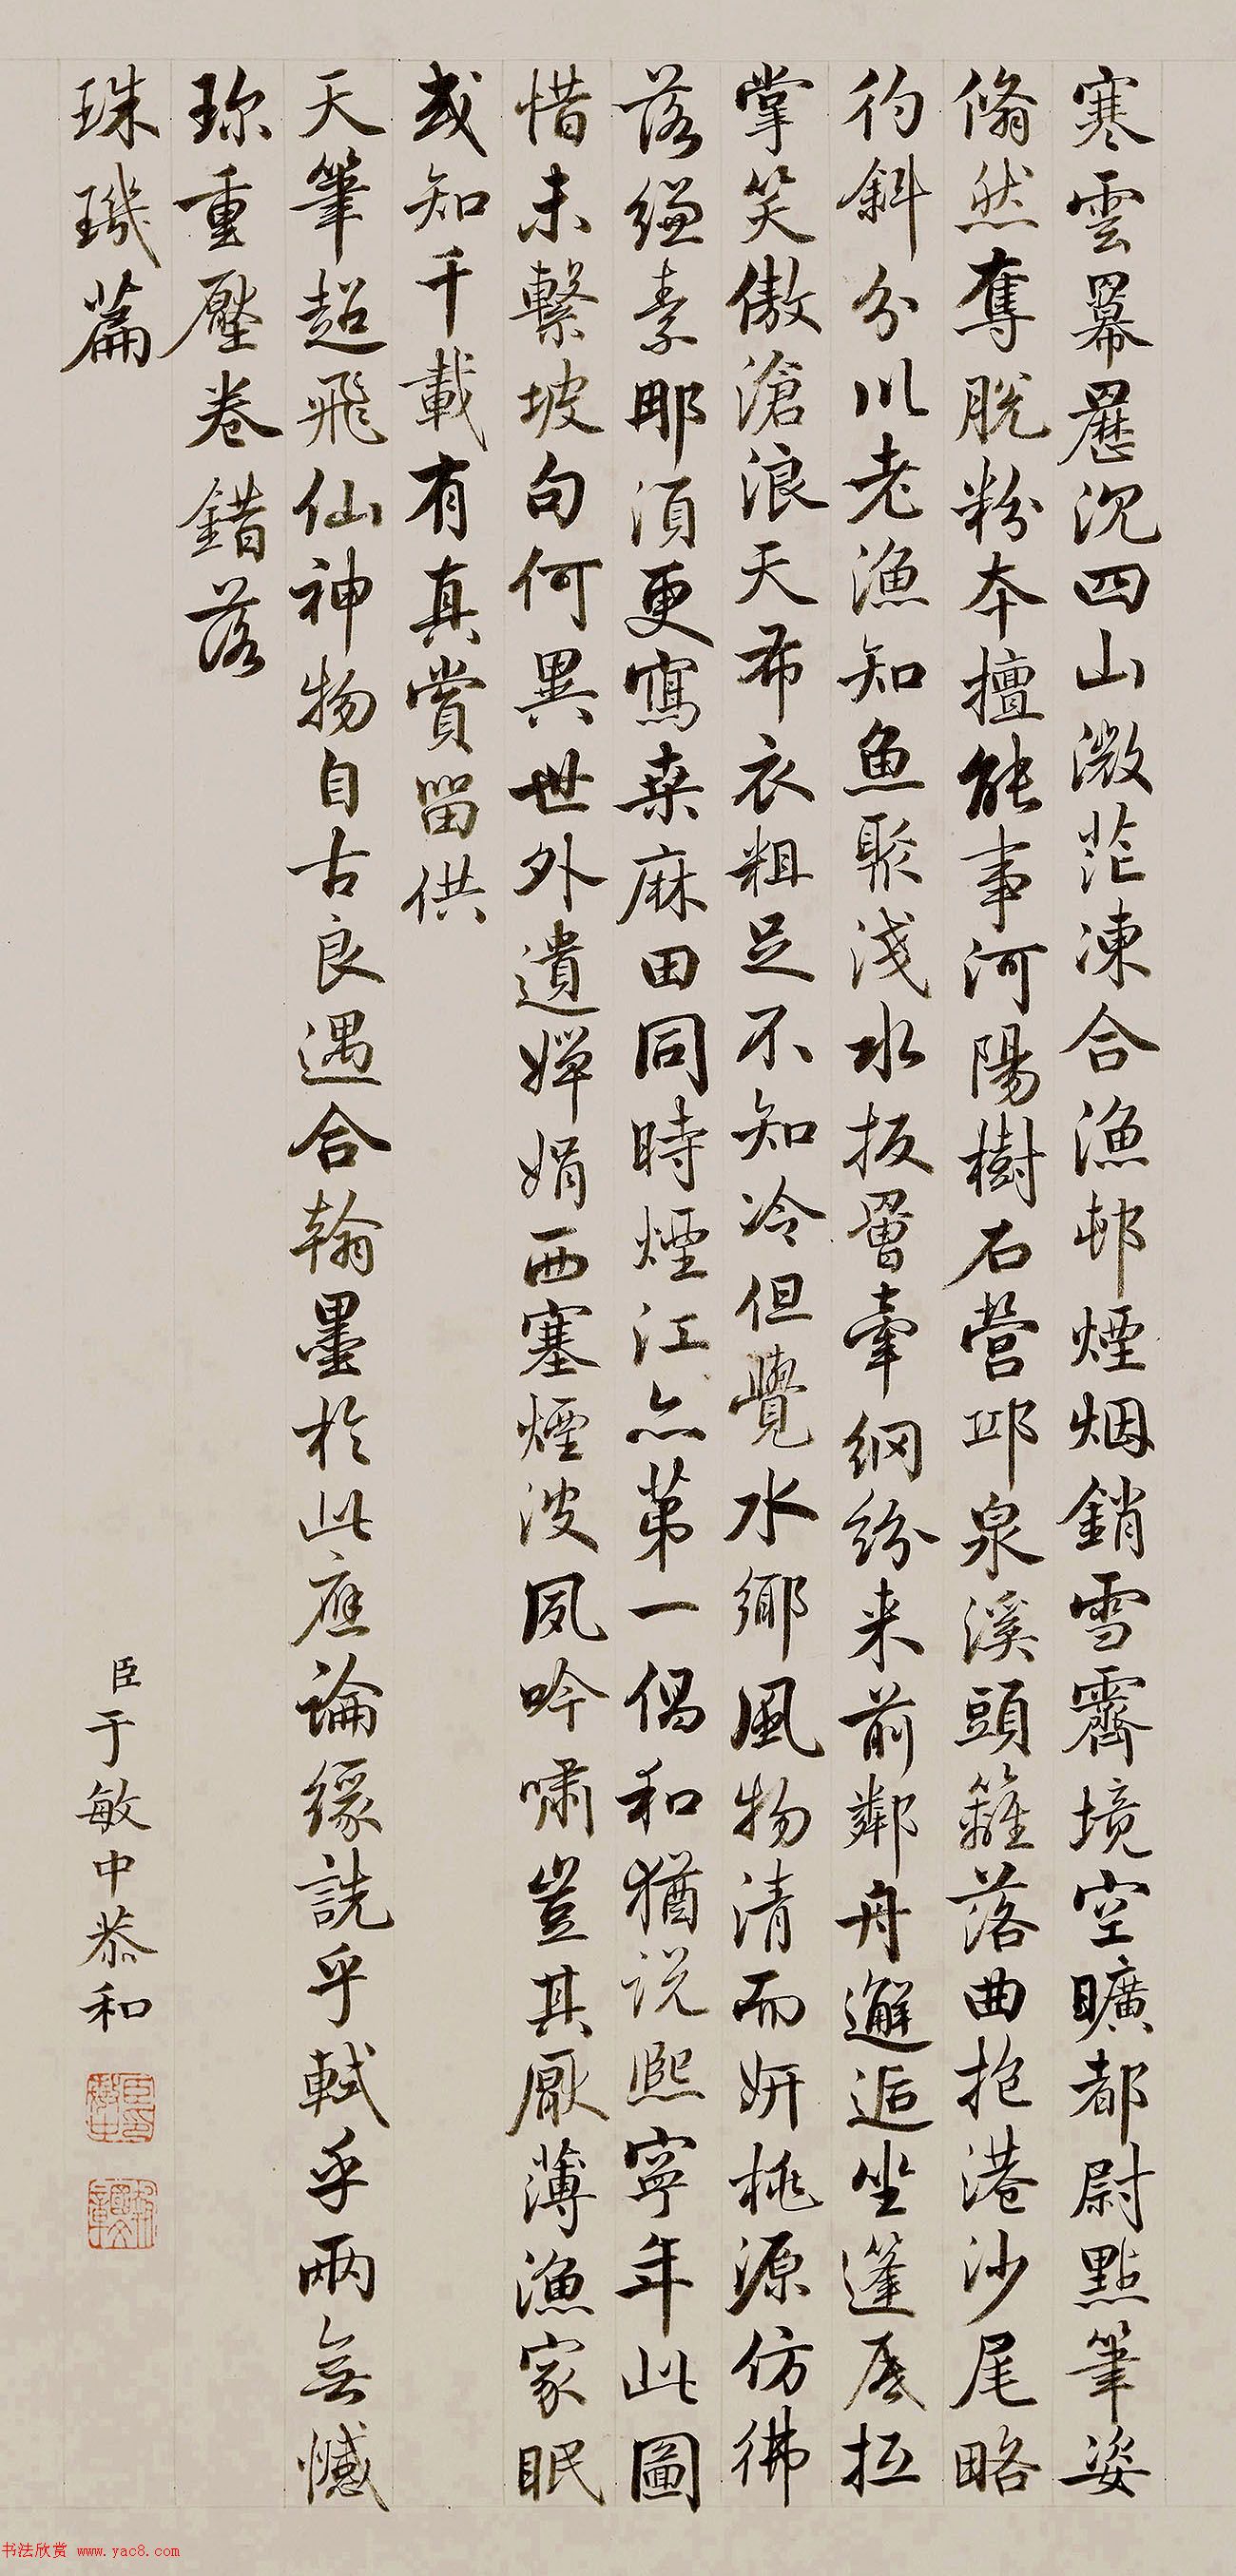 寒雲羃䍥沉四山微茫凍合漁邨煙烟銷雪霽境空曠都尉點筆姿
翛然奪脫粉本擅能事河陽樹石營邱泉溪頭籬落曲抱港沙尾略
彴斜分川老漁知魚聚淺水扳罾牽網紛来前鄰舟邂逅坐篷底抵
掌笑傲滄浪天布衣粗足不知冷但覺水鄉風物清而妍桃源仿彿
落縑素那須更寫桒麻田同時煙江亦第一倡和猶説熙寧年此圖
惜未繫坡句何異世外遺嬋娟西塞煙波夙吟嘯豈其厭薄漁家眠
或知千載有真賞留供
天筆超飛仙神物自古良遇合翰墨於此應論緣詵乎軾乎兩無憾
珎重壓卷錯落
珠璣篇
臣于敏中恭和
书法欣赏 www.yac8.com